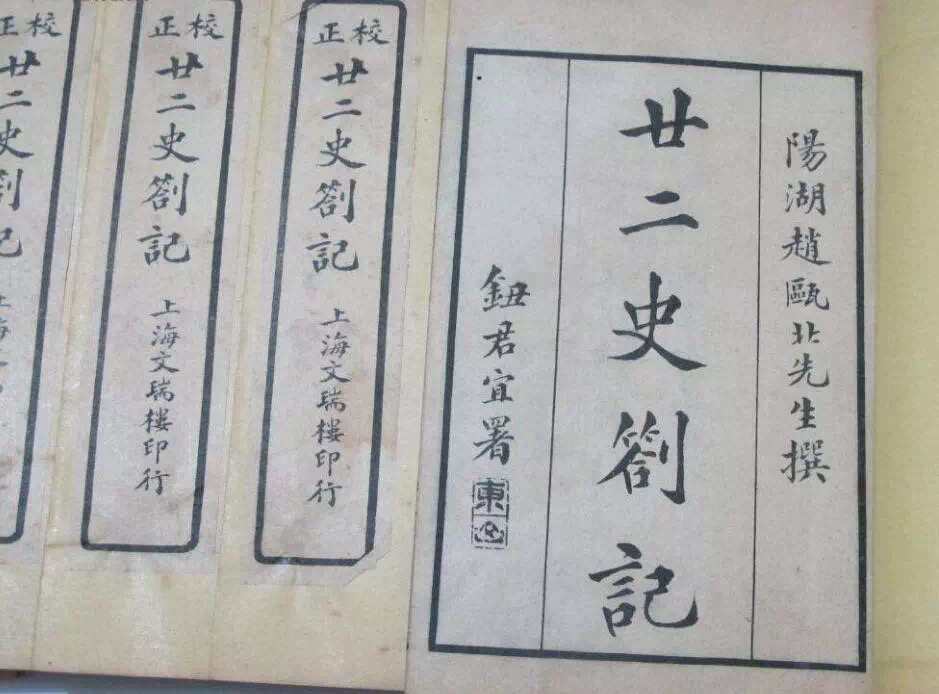 陽湖趙甌北先生撰
廿二史劄記
鈕君宜署
東
校正
廿二史劄記
上海文瑞樓印行
校正
廿二史劄記
上海文瑞樓印行
校正
廿二史劄記
上海